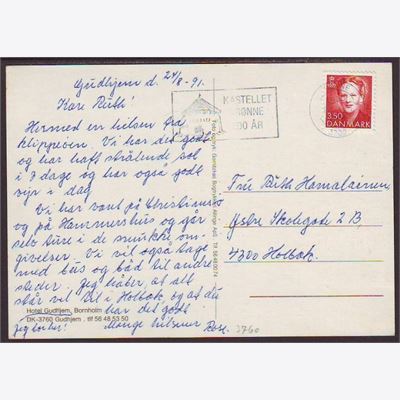 Gudhjem d. 24/8-91.
Kære Ruth!
Hermed en hilsen fra
klippeøen. Vi har det godt
og har haft strålende sol
i 7 dage og har også godt
vejr i dag.
Vi har været på Christiansø
og på Hammershus og gør
selv ture i de smukke om-
givelser. Vi vil også tage
med bus og båd til andre
steder. Jeg håber, at alt
står vel til i Holbæk, og at du
har det godt
Mange hilsner
Hotel Gudhjem, Bornholm
DK-3760 Gudhjem . tlf 56 48 53 50
KASTELLET
RØNNE
ÅR
3.50
DANMARK
Fru Ruth Hamalainen,
Østre Skolegade 2 B,
4300 Holbæk.
3760